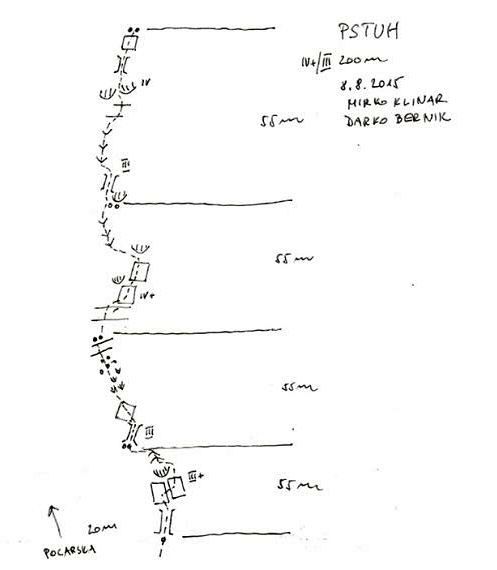 PSTUH
IV+/III 200m
8.8.2015
MIRKO KLINAR
DARKO BERNIK
IV
55m
III
55m
IV+
55m
III
III+
55m
20m
POLARSKA